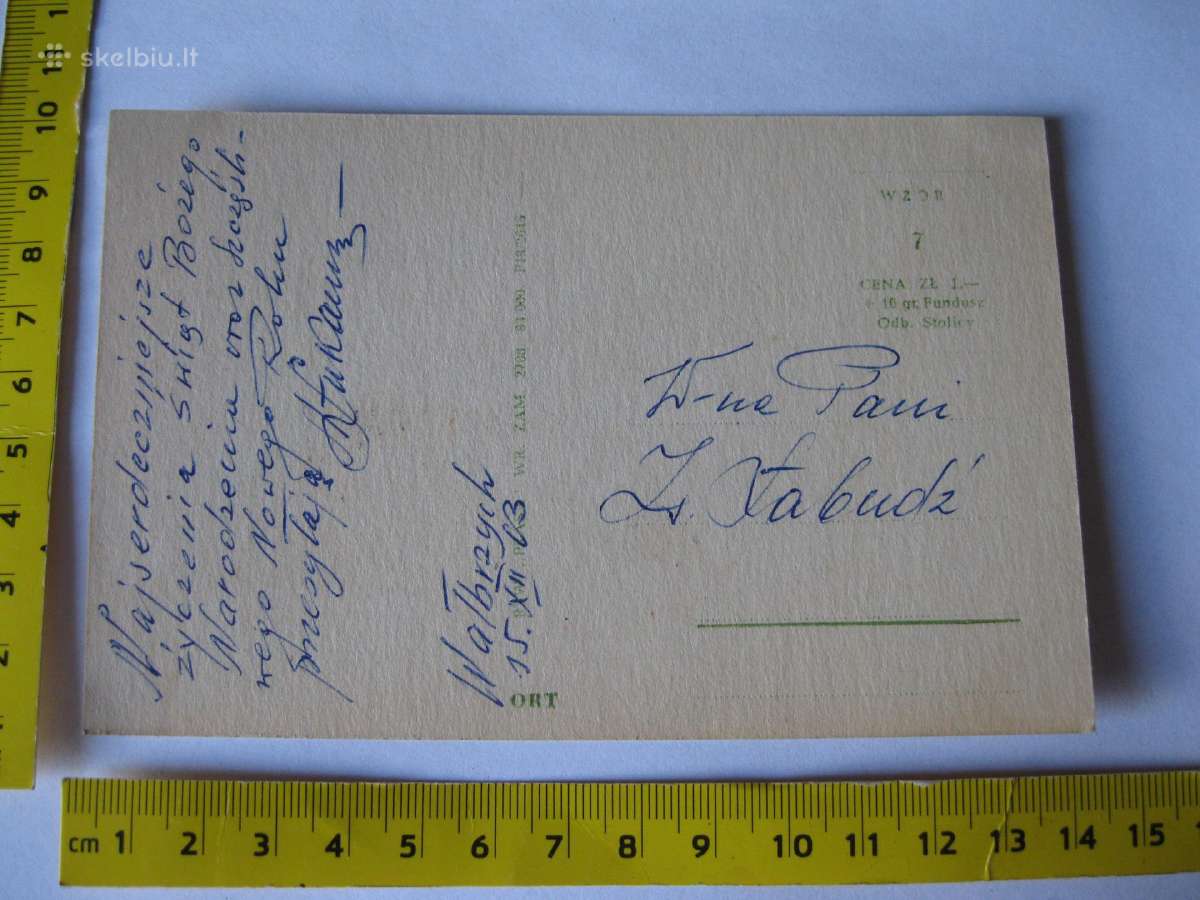 skelbiu.lt
Najserdeczniejsze
życzenia Świąt Bożego
Narodzenia oraz szczęśli-
wego Nowego Roku
przesyłają
Wałbrzych
15. XII 63
WR. ZAM
ORT
WZÓR
7
CENA ZŁ 1.—
+ 10 gr. Fundusz
Odb. Stolicy
W-na Pani
Słabudź
11
10
9
8
7
6
5
4
3
2
cm 1 2 3 4 5 6 7 8 9 10 11 12 13 14 15